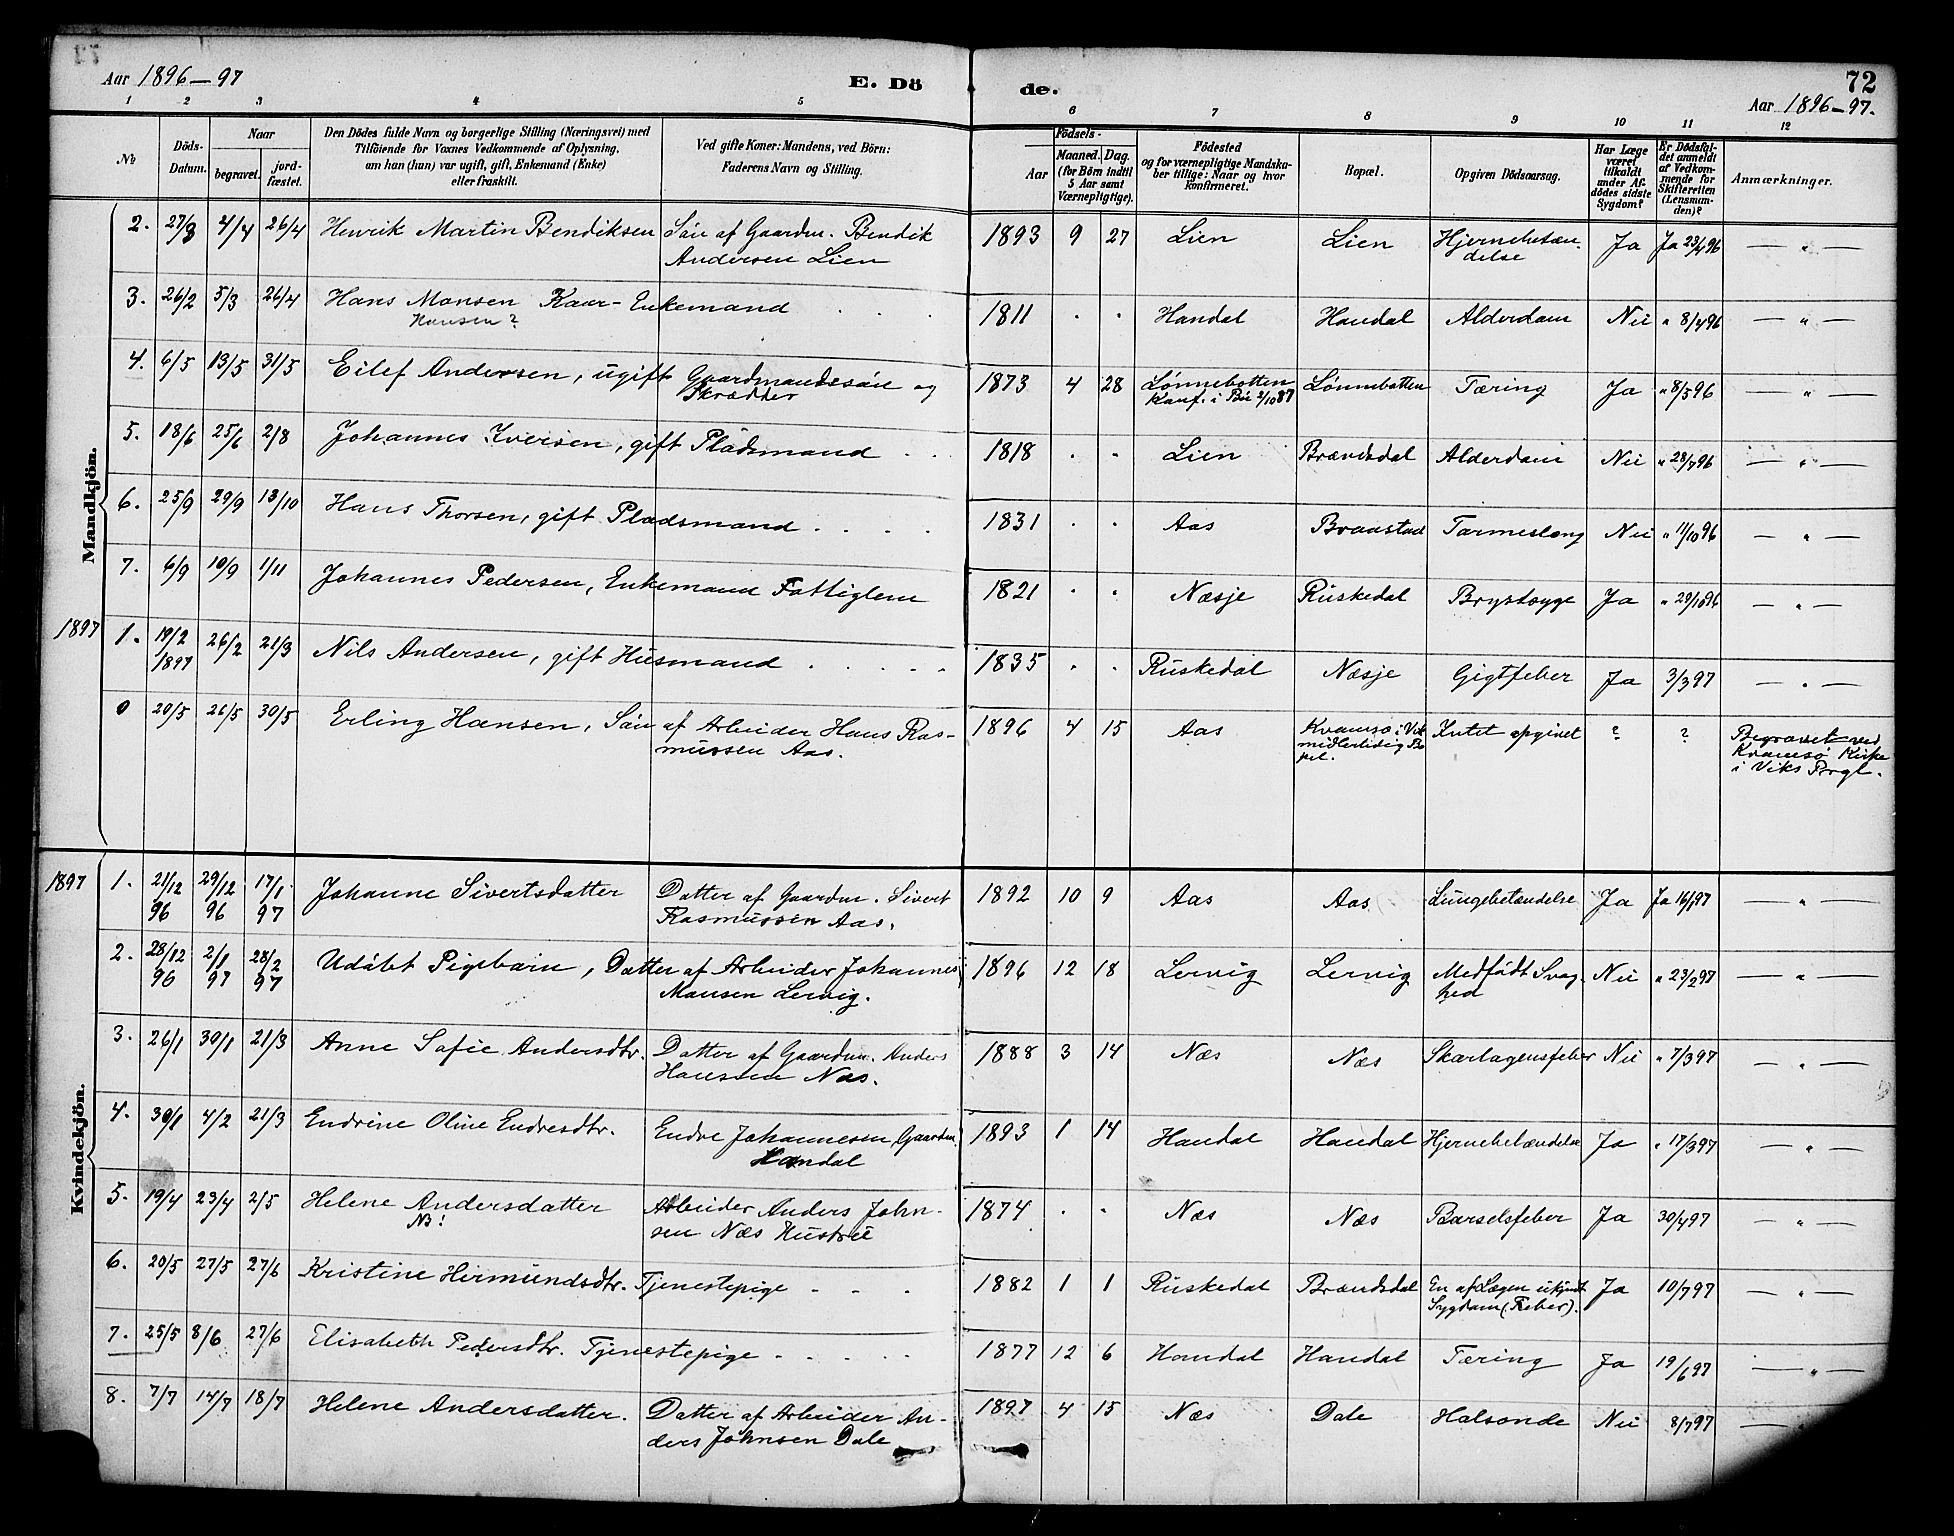 Aar 1896-97
E. Dö
de.
72
Aar 1896-97.
1 2 3 4 5 6 7 8 9 10 11 12
No
Döds-Datum.
Naar
begravet.
jord-fæstet.
Den Dödes fulde Navn og borgerlige Stilling (Næringsvei) med
Tilföiende for Voxnes Vedkommende af Oplysning,
om han (hun) var ugift, gift, Enkemand (Enke)
eller fraskilt.
Ved gifte Koner: Mandens, ved Börn:
Faderens Navn og Stilling.
Födsels-
Aar
Maaned. Dag.
(for Börn indtil
5 Aar samt
Værnepligtige).
Födested
og for værnepligtige Mandska-
ber tillige: Naar og hvor
konfirmeret.
Bopæl.
Opgiven Dödsaarsag.
Har Læge
været
tilkaldt
under Af-
dödes sidste
Sygdom?
Er Dödsfal-
det anmeldt
af Vedkom-
mende for
Skifteretten
(Lensman-
den)?
Anmærkninger.
Mandkjön.
2. 27/3 4/4 26/4 Henrik Martin Bendiksen Sön af Gaardm. Bendik 1893 9 27 Lien Lien Hjernebetæn- Ja Ja 23/4 96 — " —
Andersen Lien delse
3. 26/2 5/3 26/4 Hans Monsen Kaar- Enkemand 1811 " " Handal Handal Alderdom Nei " 8/4 96 — " —
Hansen?
4. 6/5 13/5 31/5 Eilef Andersen, ugift Gaardmandssön og 1873 4 28 Lönnebotten Lönnebotten Tæring Ja " 8/5 96 — " —
Skrædder Konf. i Bö 2/10 87
5. 18/6 25/6 2/8 Johannes Iversen, gift Pladsmand 1818 " " Lien Brændsdal Alderdom Nei " 28/7 96 — " —
6. 25/9 29/9 13/10 Hans Thorsen, gift Pladsmand 1831 " " Aas Braastad Tarmeslang Nei " 11/10 96 — " —
7. 6/9 10/9 1/11 Johannes Pedersen, Enkemand Fattiglem 1821 " " Næsje Ruskedal Brystsyge Ja " 29/10 96 — " —
1897 1. 19/2 1897 26/2 21/3 Nils Andersen, gift Husmand 1835 " " Ruskedal Næsje Gigtfeber Ja 3/3 97 — " —
0 20/5 26/5 30/5 Erling Hansen, Sön af Arbeider Hans Ras- 1896 4 15 Aas Kvamsö i Vik Intet opgivet ? ? Begravet ved
mussen Aas. midlertidig Bo- Kvamsö Kirke
pæl. i Viks Prgl.
Kvindekjön.
1897 1. 21/12 96 29/12 96 17/1 97 Johanne Sivertsdatter Datter af Gaardm. Sivert 1892 10 9 Aas Aas Lungebetændelse Ja Ja 16/1 97 — " —
Rasmussen Aas.
2. 28/12 96 2/1 97 28/2 97 Udöbt Pigebarn, Datter af Arbeider Johannes 1896 12 18 Lervig Lervig Medfödt Svag- Nei " 23/2 97 — " —
Monsen Lervig. hed
3. 26/1 30/1 21/3 Anne Sofie Andersdtr. Datter af Gaardm. Anders 1888 3 14 Næs Næs Skarlagensfeber Nei " 7/3 97 — " —
Hanssen Næs.
4. 30/1 4/2 21/3 Endrine Oline Endresdtr. Endre Johannesen Gaardm. 1893 1 14 Handal Handal Hjernebetændelse Ja " 17/3 97 — " —
Handal
5. 19/4 23/4 2/5 Helene Andersdatter Arbeider Anders John- 1874 " " Næs Næs Barselsfeber Ja 30/4 97 — " —
NB! sen Næs Hustru
6. 20/5 27/5 27/6 Kristine Hermundsdtr. Tjenestepige 1882 1 1 Ruskedal Brændsdal En af Lægen ukjendt Ja 10/7 97 — " —
Sygdom (Feber).
7. 25/5 8/6 27/6 Elisabeth Pedersdtr. Tjenestepige 1877 12 6 Handal Handal Tæring Ja 19/6 97 — " —
8. 7/7 14/7 18/7 Helene Andersdatter. Datter af Arbeider An- 1897 4 15 Næs Dale Halsonde Nei 8/7 97 —
ders Johnsen Dale